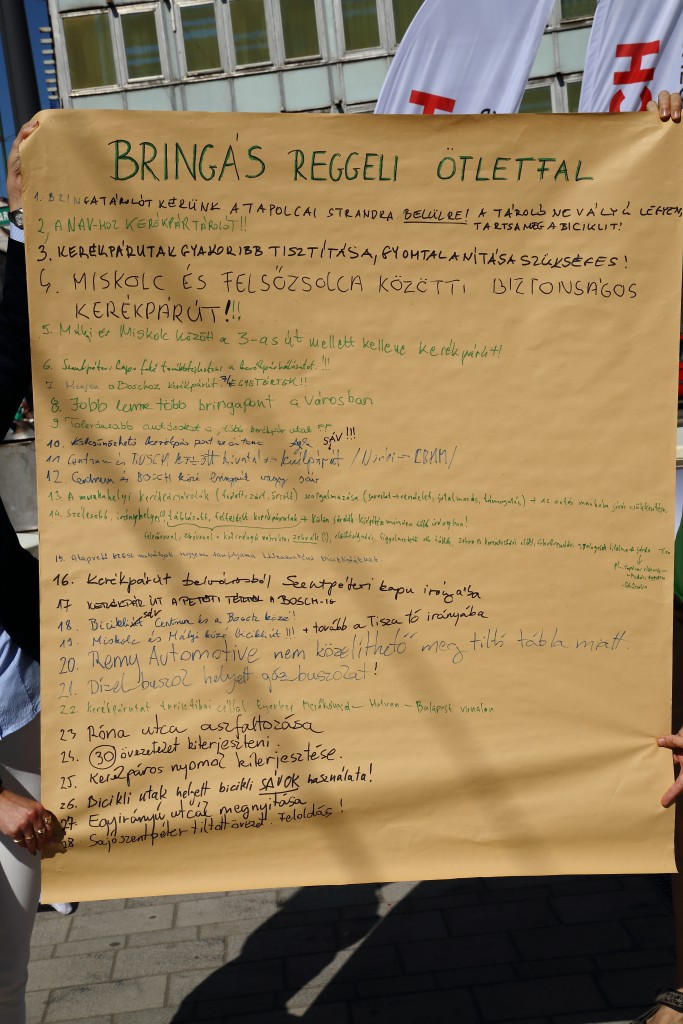 BRINGÁS REGGELI ÖTLETFAL
1. BRINGATÁROLÓT KÉRÜNK A TAPOLCAI STRANDRA BELÜLRE! A TÁROLÓ NE VÁLYÚ LEGYEN,
TARTSA MEG A BICIKLIT!
2, A NAV-HOZ KERÉKPÁR TÁROLÓT!!
3. KERÉKPÁRUTAK GYAKORIBB TISZTÍTÁSA, GYOMTALANÍTÁSA SZÜKSÉGES!
4. MISKOLC ÉS FELSŐZSOLCA KÖZÖTTI BIZTONSÁGOS
KERÉKPÁRÚT!!!
5. Mályi és Miskolc között a 3-as út mellett kellene kerékpárút!
6. Szentpéteri kapu felé továbbfejleszteni a kerékpárhálózatot!!!
7. Menjen a Boschoz kerékpárút. EGYETÉRTEK!!
8. Jobb lenne több bringapont a városban
9. Toleránsabb autósokat,
10. Kölcsönözhető kerékpár pont SÁV!!!
11. Centrum és BOSCH között kerékpárút
12. Centrum és BOSCH közé bringaút vagy sáv
13. A munkahelyi kerékpártárolók (fedett, zárt, őrzött) szorgalmazása
14. Szélesebb, irányhelyes(!), táblázott, felfestett kerékpárutak
15.
16. Kerékpárút belvárosból Szentpéteri kapu irányába
17 KERÉKPÁR ÚT A PETŐFI TÉRTŐL A BOSCH-IG
SÁV
18. Bicikliút Centrum és a Bosch közé!
19. Miskolc és Mályi közé bicikliút!!! + tovább a Tisza tó irányába
20. Remy Automotive nem közelíthető meg tiltó tábla miatt.
21. Dízel buszok helyett gáz buszokat!
22. kerékpárutat turisztikai céllal Eger Mezőkövesd - Hatvan - Budapest vonalon
23 Róna utca aszfaltozása
24. 30 övezetet kiterjeszteni.
25. Kerékpáros nyomok kiterjesztése.
26. Bicikli utak helyett bicikli SÁVOK használata!
27 Egyirányú utcák megnyitása
28 Sajószentpéter tiltott övezet. Feloldás!